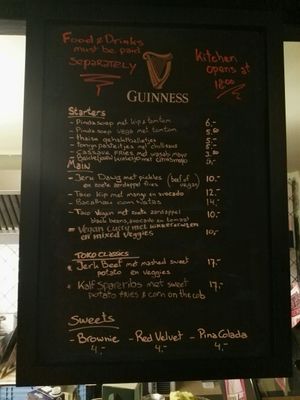 Food & Drinks
must be paid
separately
Kitchen
opens at
18:00
GUINNESS
Starters
- Pindasoep met kip & tomtom 6,-
- Pindasoep vega met tomtom
- thaise gehaktballetjes
- tonijn pasteitjes met chilisaus
- cassave fries met wasabi mayo
met citrusmayo
Main
- Jerk Dawg met pickles (beef of vegan) 10,-
en zoete aardappel fries
- Taco Kip met mango en avocado 12,-
- Bacalhau com Natas 14,-
- Taco Vegan met zoete aardappel 10,-
black beans, avocado en tomaat
- Vegan Curry met kikkererwten 10,-
en mixed veggies
TOKO CLASSICS
Jerk Beef met mashed sweet 17,-
potato en veggies
Kalf Spareribs met sweet 17,-
potato fries & corn on the cob
Sweets
- Brownie - Red Velvet - Pina Colada
4,- 4,- 4,-